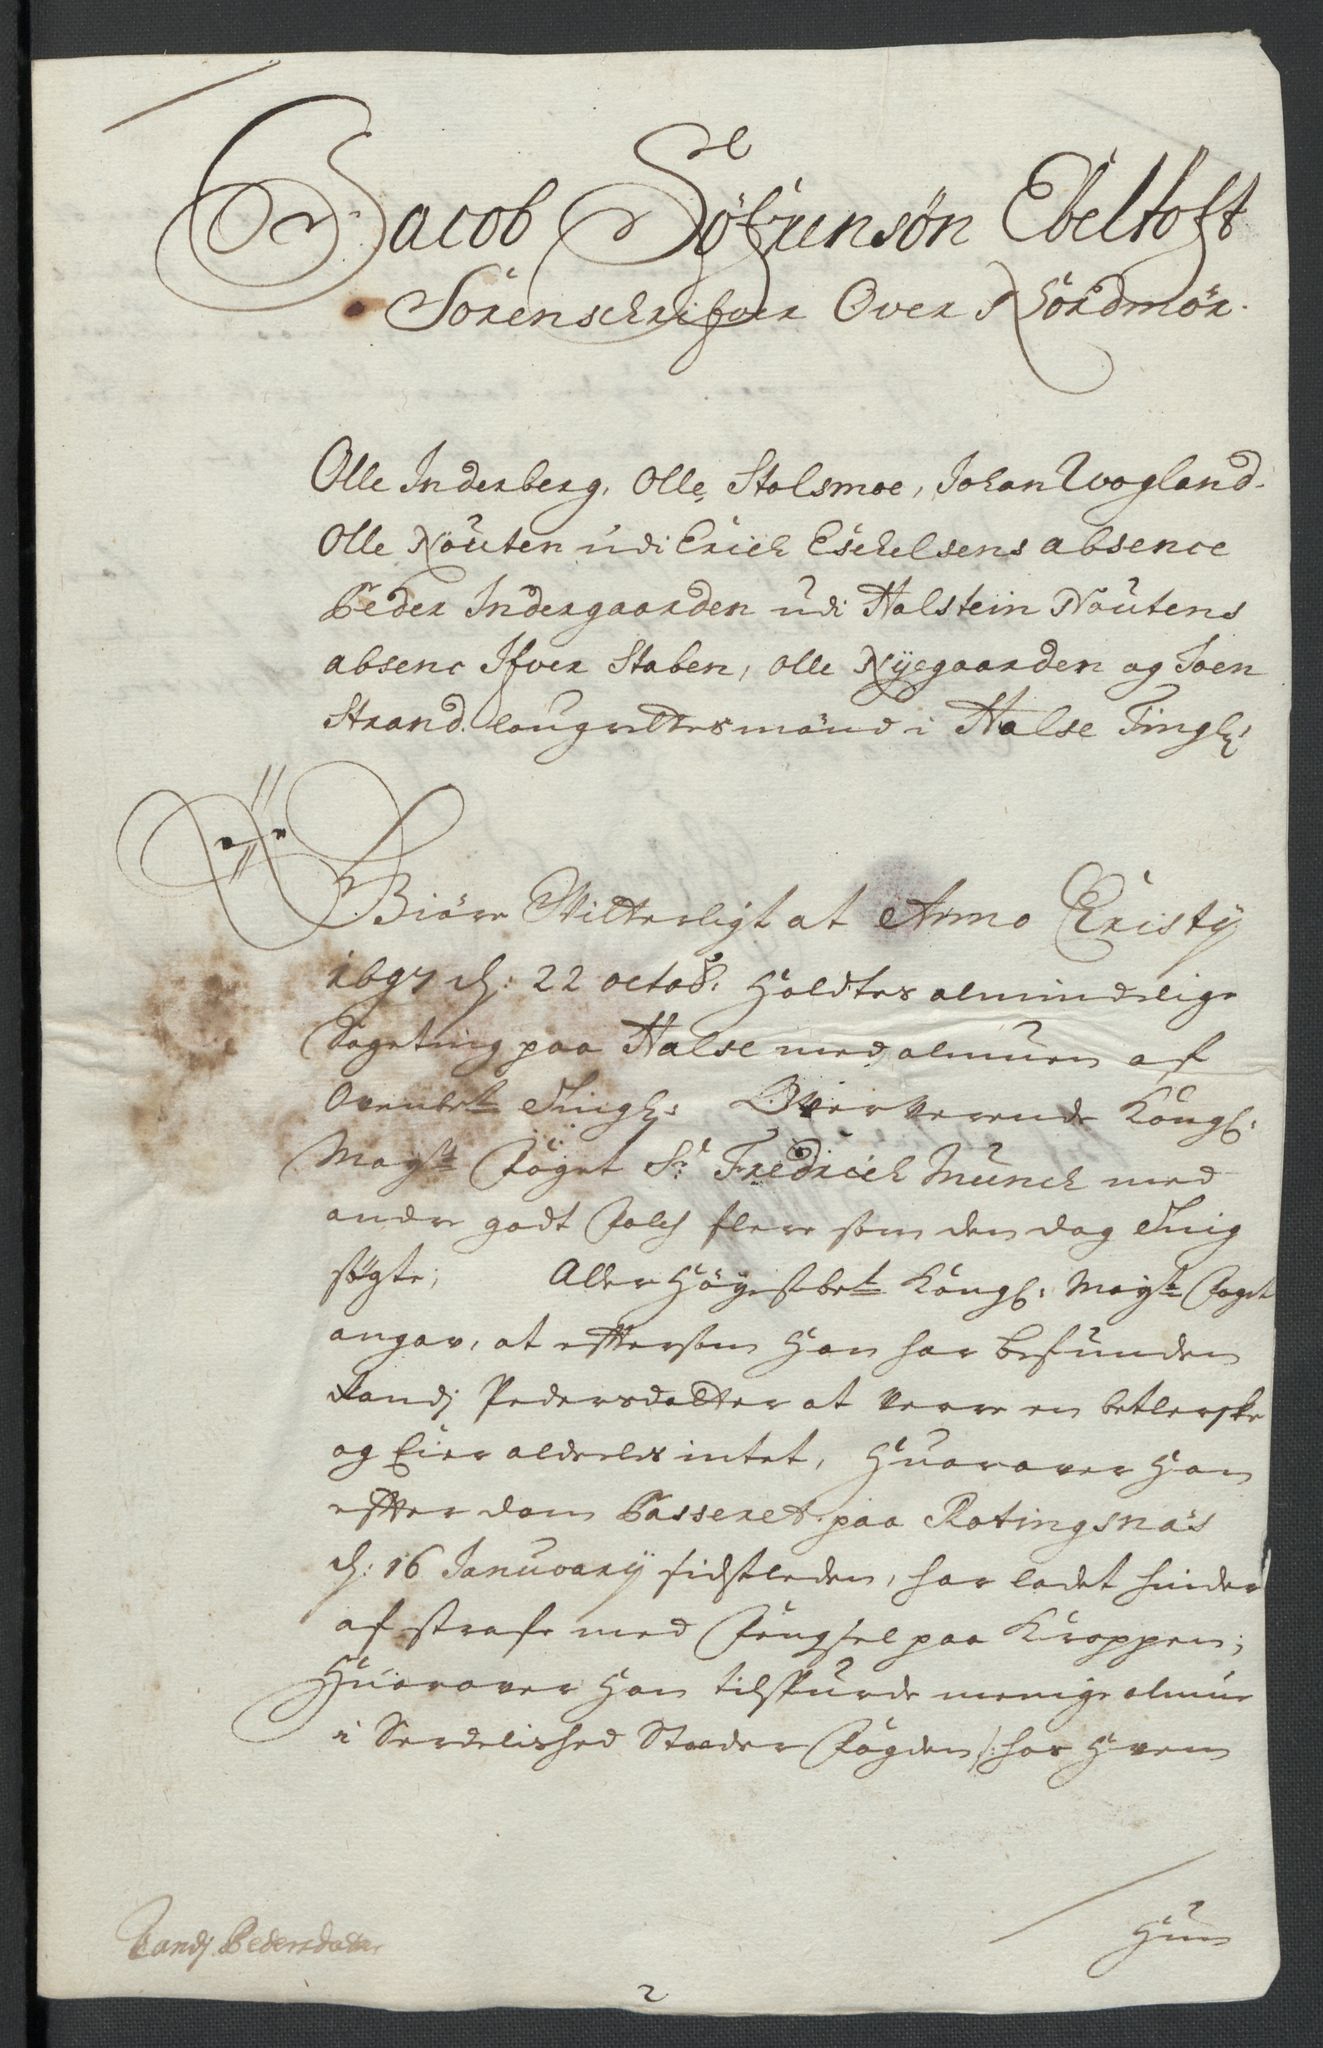 Jacob Sörensøn Ebeltoft
Sorenschrifver Over Nordmør.
Olle Inderberg, Olle Stolsmoe, Johan Wogland.
Olle Nöuten udi Erich Eschelsens absence
Peder Indergaarden udi Halstein Noutens
absenc Ifver Staben, olle Nÿegaarden og Joen
Strand. lougrettesmænd i Halse Tingl:
Giöre Witterligt at Anno Christÿ
1697 d: 22 octob: Holdtes almindelige
Sageting paa Halse med almuen af
Ovenbete Tingl: Oververende Kongl:
Mayts Foget Sr: Fredrich Munch med
andre godt Folch flere som den dag Ting
søgte; Aller Høgestbete Kongl: Mayts Foget
angav, at effter som Han har befunden
Randj Pedersdatter at være en betlerske
og Eier aldeles intet, Huorover Han
effter dom Passeret paa Rotingsnæs
d: 16 Januarÿ sidstleden, har ladet hinder
af straffe med Fengsel paa Kroppen;
Huorover Han tilspurde menige almue
i Serdelished Stæder Fogden /: hos Hvem
Hun
Randj Pedersdatter
2